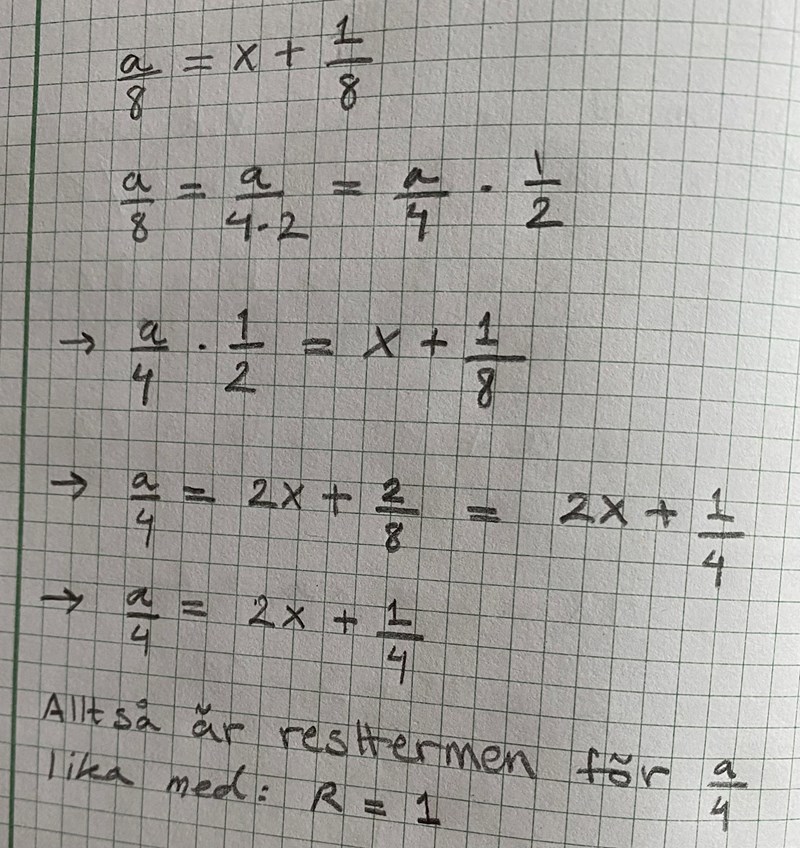 a/8 = x + 1/8
a/8 = a/4·2 = a/4 · 1/2
→ a/4 · 1/2 = x + 1/8
→ a/4 = 2x + 2/8 = 2x + 1/4
→ a/4 = 2x + 1/4
Alltså är resttermen för a/4
lika med: R = 1